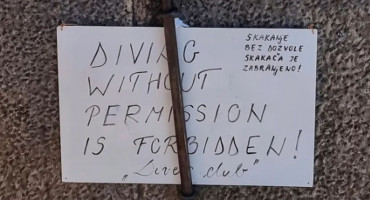 DIVING
WITHOUT
PERMISSION
IS FORBIDDEN!
SKAKANJE
BEZ DOZVOLE
SKAKAČA JE
ZABRANJENO!
club"